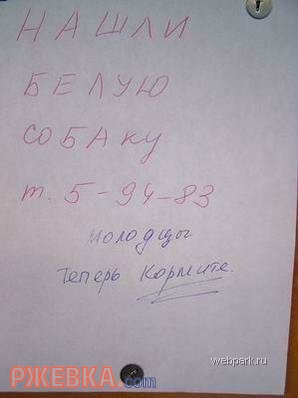 НАШЛИ
БЕЛУЮ
СОБАКУ
т. 5-94-83
молодцы
теперь кормите.
webpark.ru
РЖЕВКА.com